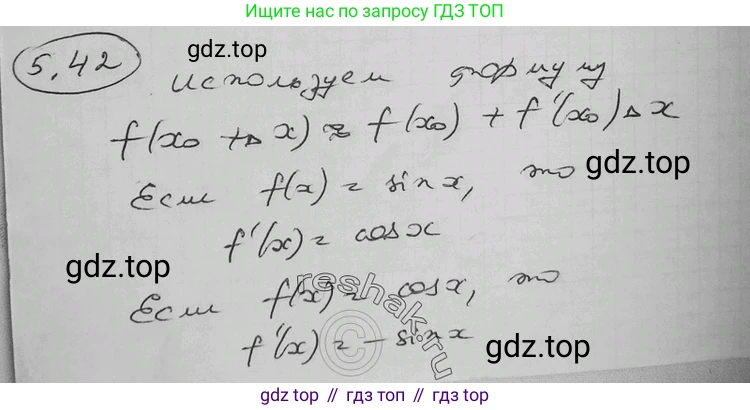 Ищите нас по запросу ГДЗ ТОП
5.42
gdz.top
Используем формулу
f(x₀ + Δx) ≈ f(x₀) + f'(x₀)Δx
Если f(x) = sinx, то
gdz.top
f'(x) = cosx
gdz.top
Если f(x) = cosx, то
reshak.ru
©
f'(x) = -sinx
gdz.top
gdz.top // гдз топ // gdz.top